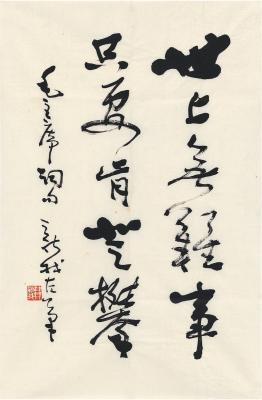 世上無難事
只要肯登攀
毛主席詞句